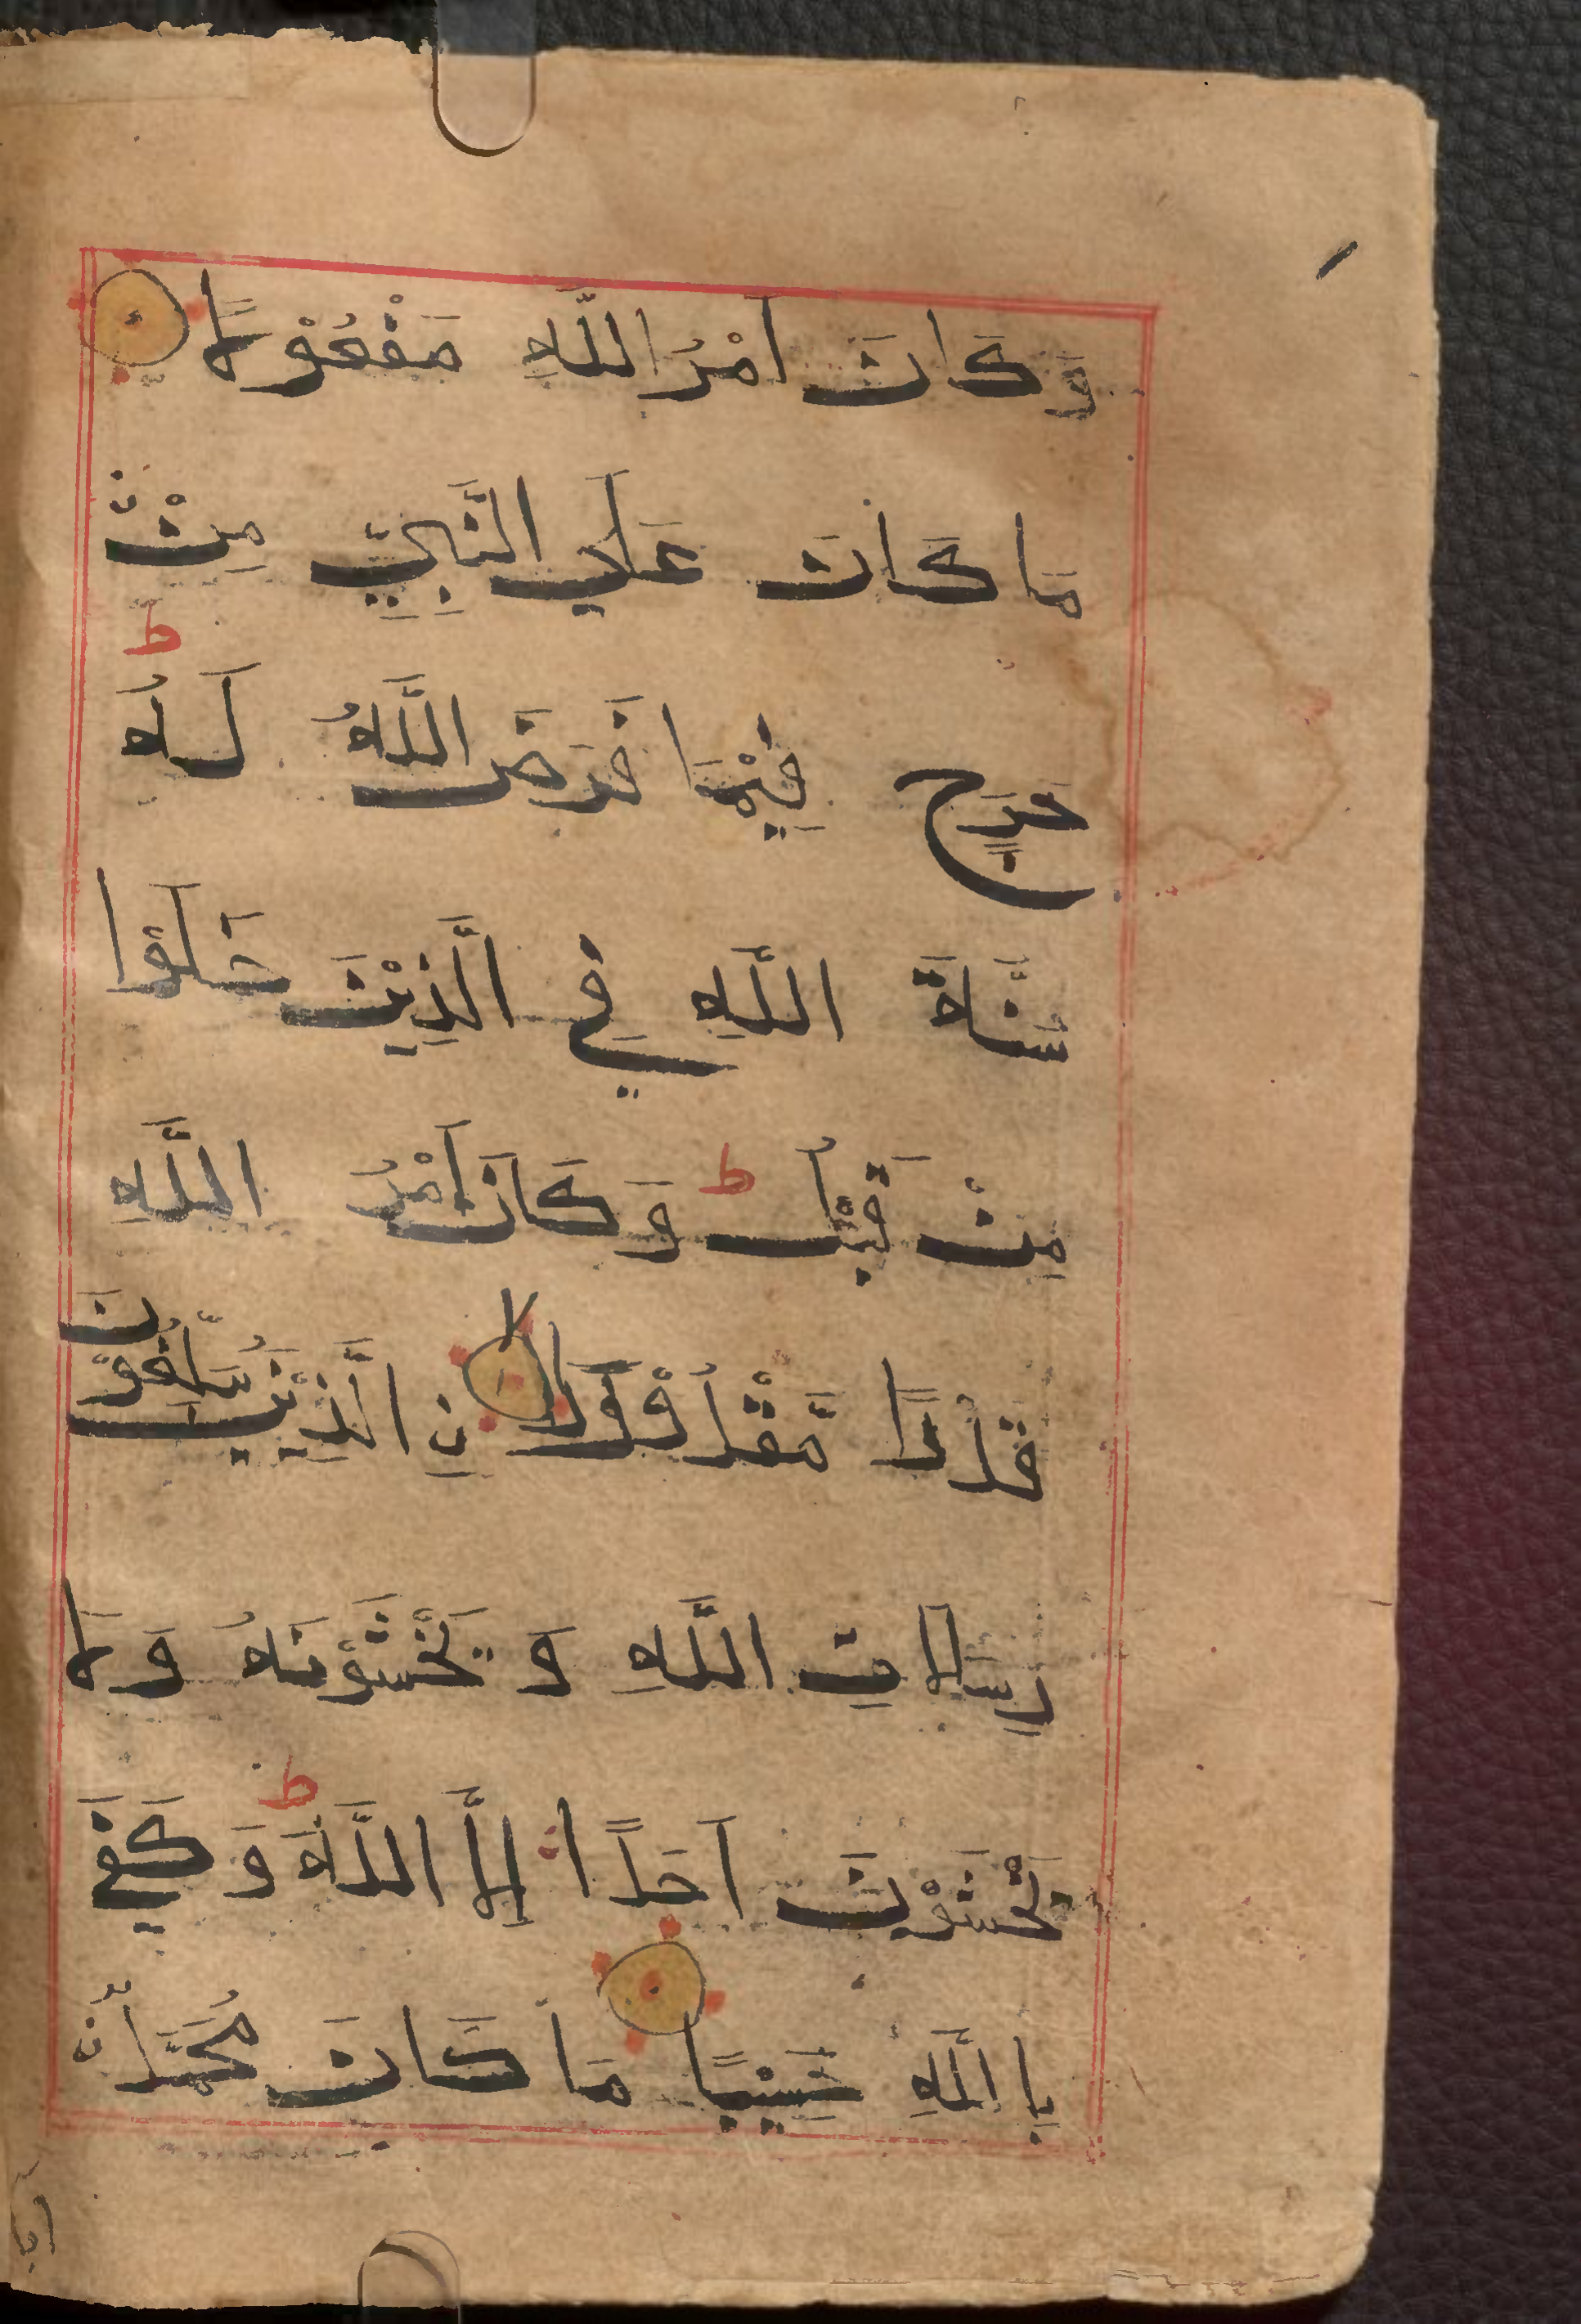 وَكَانَ اَمْرُ اللَّهِ مَفْعُوْلًا
مَا كَانَ عَلَي النَّبِيِّ مِنْ
حَرَجٍ فِيْمَا فَرَضَ اللَّهُ لَهُ ط
سُنَّةَ اللَّهِ فِي الَّذِيْنَ خَلَوْا
مِنْ قَبْلُ ط وَكَانَ اَمْرُ اللَّهِ
قَدَرًا مَّقْدُوْرًا لا نِ الَّذِيْنَ يُبَلِّغُوْنَ
رِسَالَاتِ اللَّهِ وَ يَخْشَوْنَهُ وَ لَا
يَخْشَوْنَ اَحَدًا اِلَّا اللَّهَ ط وَ كَفَي
بِاللَّهِ حَسِيْبًا مَا كَانَ مُحَمَّدٌ
ابا